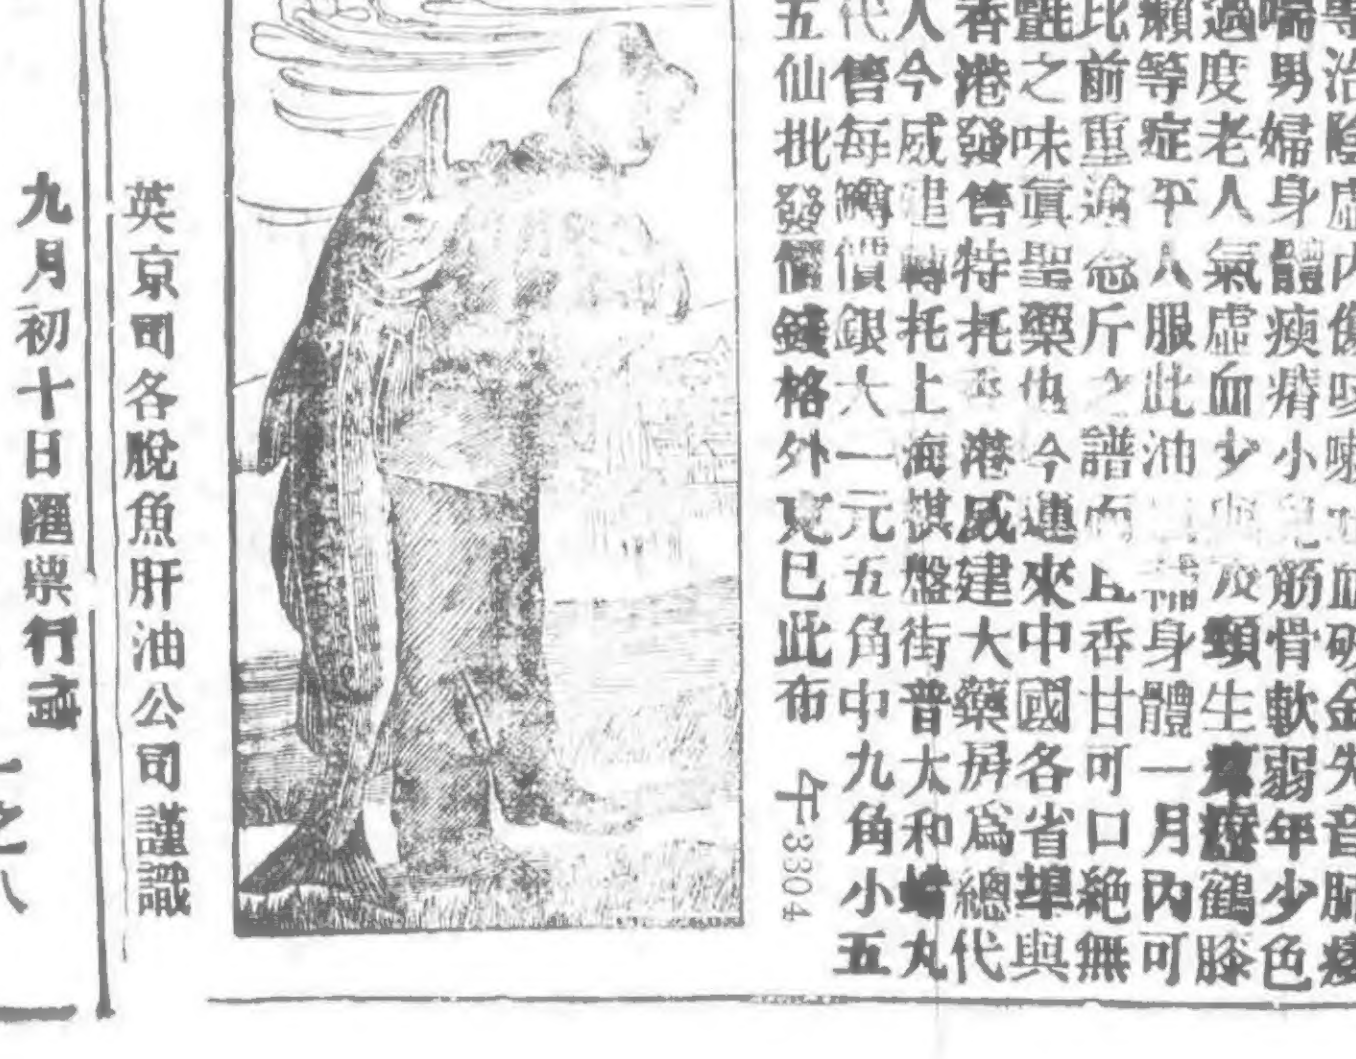 專治陰虛內傷咳嗽吐血破金失音肺痿
喘男婦身體瘦瘠小兒筋骨軟弱年少色
過度老人氣虛血少 及頸生瘰癧鶴膝
癩等症平人服此油 身體一月內可
比前重逾念斤之譜而且香甘可口絕無
羶之味眞聖藥也今連來中國各省埠與
香港發售特托 港威建大藥房爲總代
人今威建轉托上海棋盤街普太和 丸
代售每罇價銀大一元五角中九角小五
五仙批發價錢格外克己此布 午3304
英京司各脫魚肝油公司謹識
九月初十日滙票行 
一之八